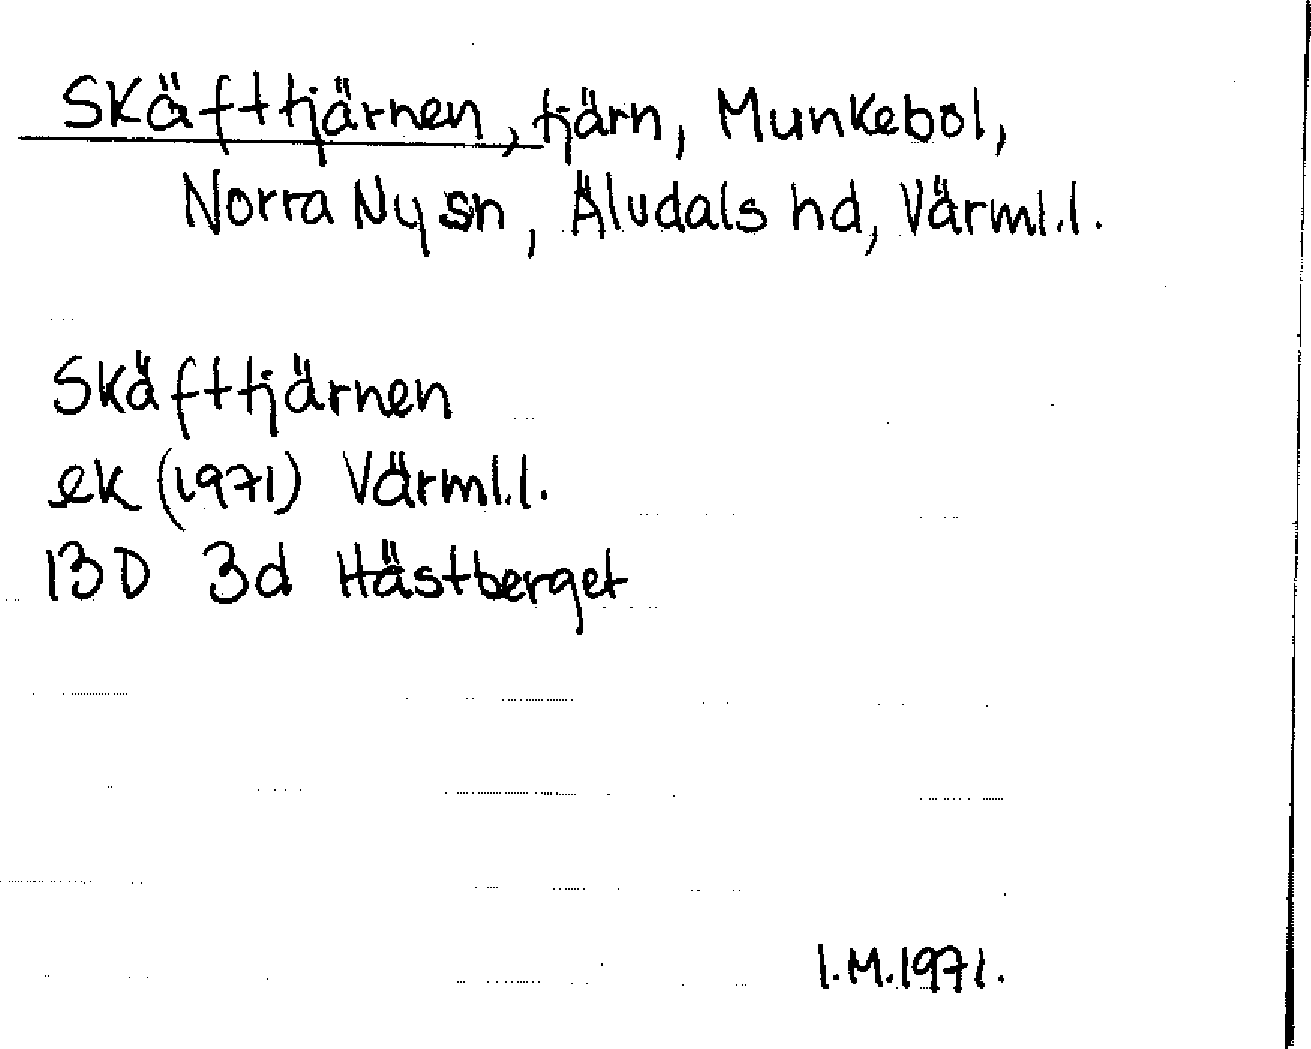 Skäfttjärnen, tjärn, Munkebol,
Norra Ny sn, Älvdals hd, Värml.l.
Skäfttjärnen
ek (1971) Värml.l.
13D 3d Hästberget
I.M.1971.